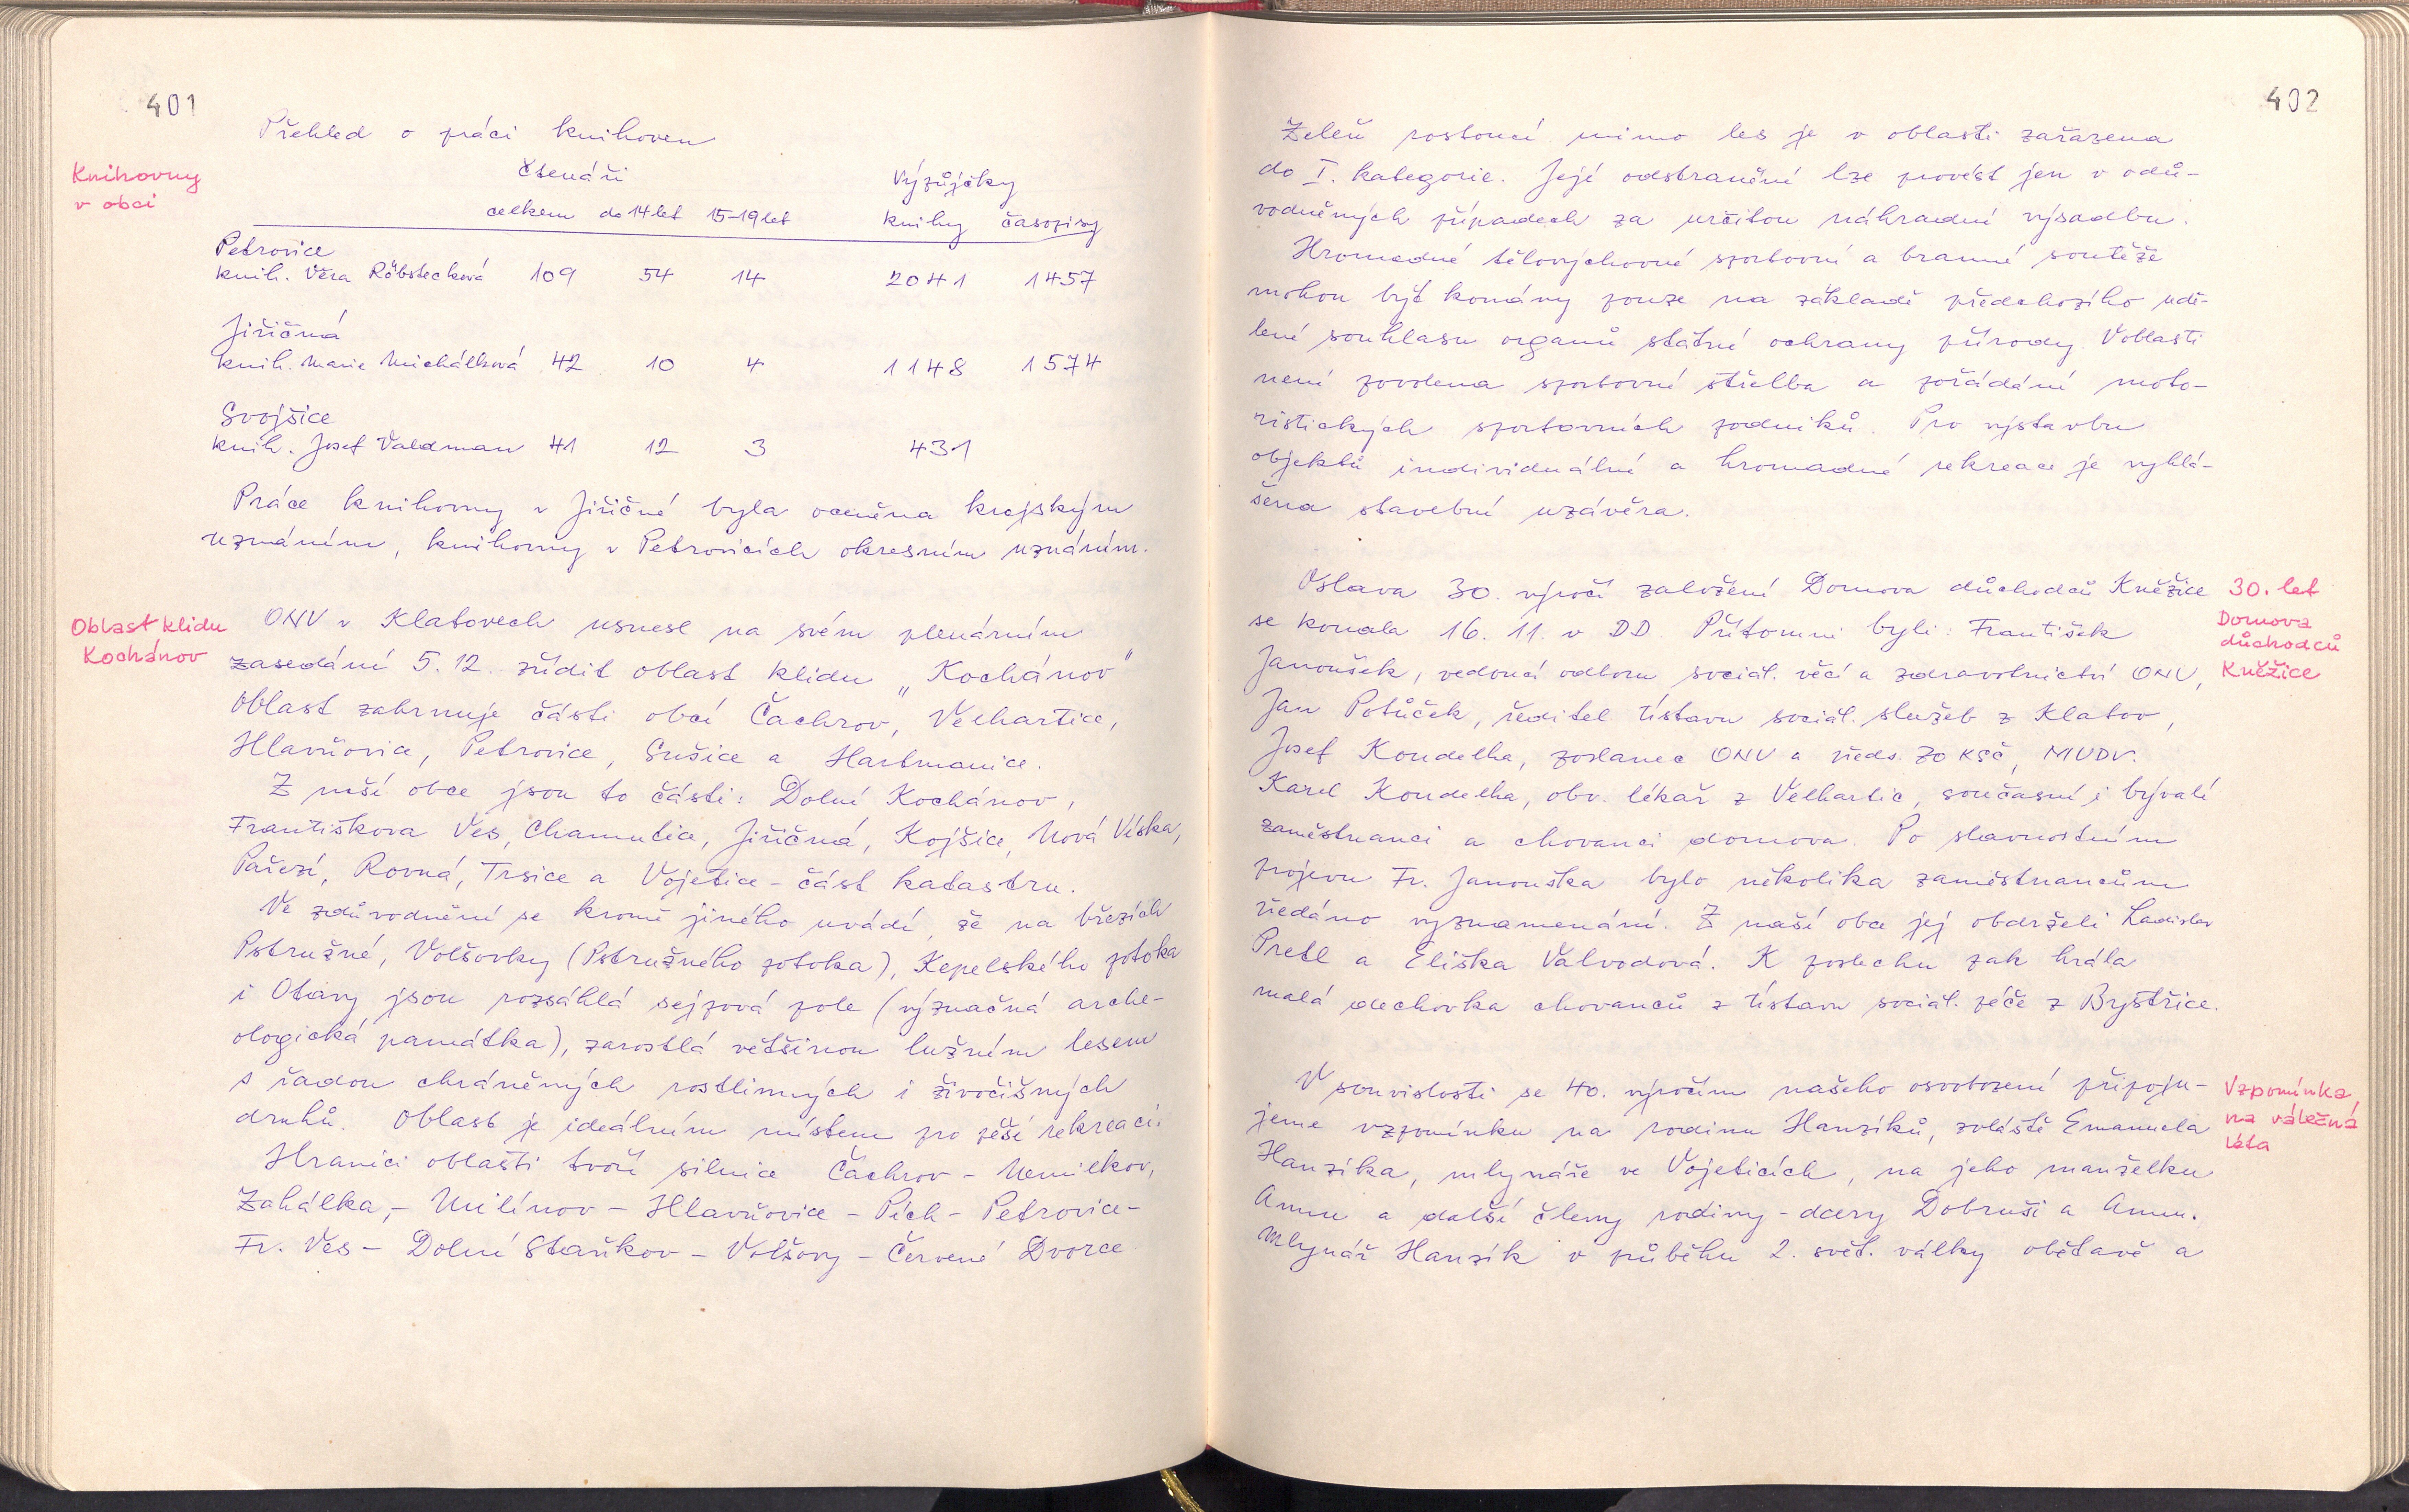 401
Přehled o práci knihoven
Knihovny
v obci
Čtenáři Výpůjčky
celkem do 14 let 15-19 let knihy časopisy
Petrovice
knih. Věra Röbstecková 109 54 14 2041 1457
Jiřičná
knih. Marie Michálková 42 10 4 1148 1574
Svojšice
knih. Josef Valdman 41 12 3 431
Práce knihovny v Jiřičné byla oceněna krajským
uznáním, knihovny v Petrovicích okresním uznáním.
Oblast klidu
Kochánov
ONV v Klatovech usnesl na svém plenárním
zasedání 5.12. zřídit oblast klidu „Kochánov"
Oblast zahrnuje části obcí Čachrov, Velhartice,
Hlavňovice, Petrovice, Sušice a Hartmanice.
Z naší obce jsou to části: Dolní Kochánov,
Františkova Ves, Chamutice, Jiřičná, Kojšice, Nová Víska,
Pařezí, Rovná, Trsice a Vojetice - část katastru.
Ve zdůvodnění se kromě jiného uvádí, že na březích
Pstružné, Volšovky (Pstružného potoka), Kepelského potoka
i Otavy jsou rozsáhlá sejpová pole (význačná arche-
ologická památka), zarostlá většinou lužním lesem
s řadou chráněných rostlinných i živočišných
druhů. Oblast je ideálním místem pro pěší rekreaci.
Hranici oblasti tvoří silnice Čachrov - Nemilkov,
Zahálka, - Milínov - Hlavňovice - Pích - Petrovice -
Fr. Ves - Dolní Staňkov - Volšovy - Červené Dvorce
402
Zeleň rostoucí mimo les je v oblasti zařazena
do I. kategorie. Její odstranění lze provést jen v odů-
vodněných případech za určitou náhradní výsadbu.
Hromadné tělovýchovné sportovní a branné soutěže
mohou být konány pouze na základě předchozího udě-
lení souhlasu orgánů státní ochrany přírody. V oblasti
není povolena sportovní střelba a pořádání moto-
ristických sportovních podniků. Pro výstavbu
objektů individuální a hromadné rekreace je vyhlá-
šena stavební uzávěra.
Oslava 30. výročí založení Domova důchodců Kněžice
se konala 16. 11. v DD. Přítomni byli: František
Janoušek, vedoucí odboru sociál. věcí a zdravotnictví ONV,
Jan Potůček, ředitel Ústavu sociál. služeb z Klatov,
Josef Koudelka, poslanec ONV a předs. ZO KSČ, MUDr.
Karel Koudelka, obv. lékař z Velhartic, současní i bývalí
zaměstnanci a chovanci domova. Po slavnostním
projevu Fr. Janouška bylo několika zaměstnancům
předáno vyznamenání. Z naší obce jej obdrželi Ladislav
Pretl a Eliška Valvodová. K poslechu pak hrála
malá dechovka chovanců z Ústavu sociál. péče z Bystřice.
30. let
Domova
důchodců
Kněžice
V souvislosti se 40. výročím našeho osvobození připoju-
jeme vzpomínku na rodinu Hanzíků, zvláště Emanuela
Hanzíka, mlynáře ve Vojeticích, na jeho manželku
Annu a další členy rodiny - dcery Dobruši a Annu.
Mlynář Hanzík v průběhu 2. svět. války obětavě a
Vzpomínka
na válečná
léta